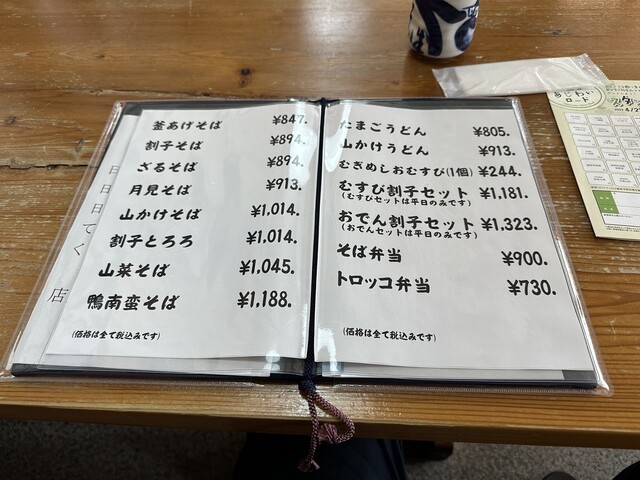 釜あげそば ¥847.
割子そば ¥894.
ざるそば ¥894.
月見そば ¥913.
山かけそば ¥1,014.
割子とろろ ¥1,014.
山菜そば ¥1,045.
鴨南蛮そば ¥1,188.
(価格は全て税込みです)
たまごうどん ¥805.
山かけうどん ¥913.
むぎめしおむすび(1個) ¥244.
むすび割子セット ¥1,181.
(むすびセットは平日のみです)
おでん割子セット ¥1,323.
(おでんセットは平日のみです)
そば弁当 ¥900.
トロッコ弁当 ¥730.
(価格は全て税込みです)
てぐ
店
ロード